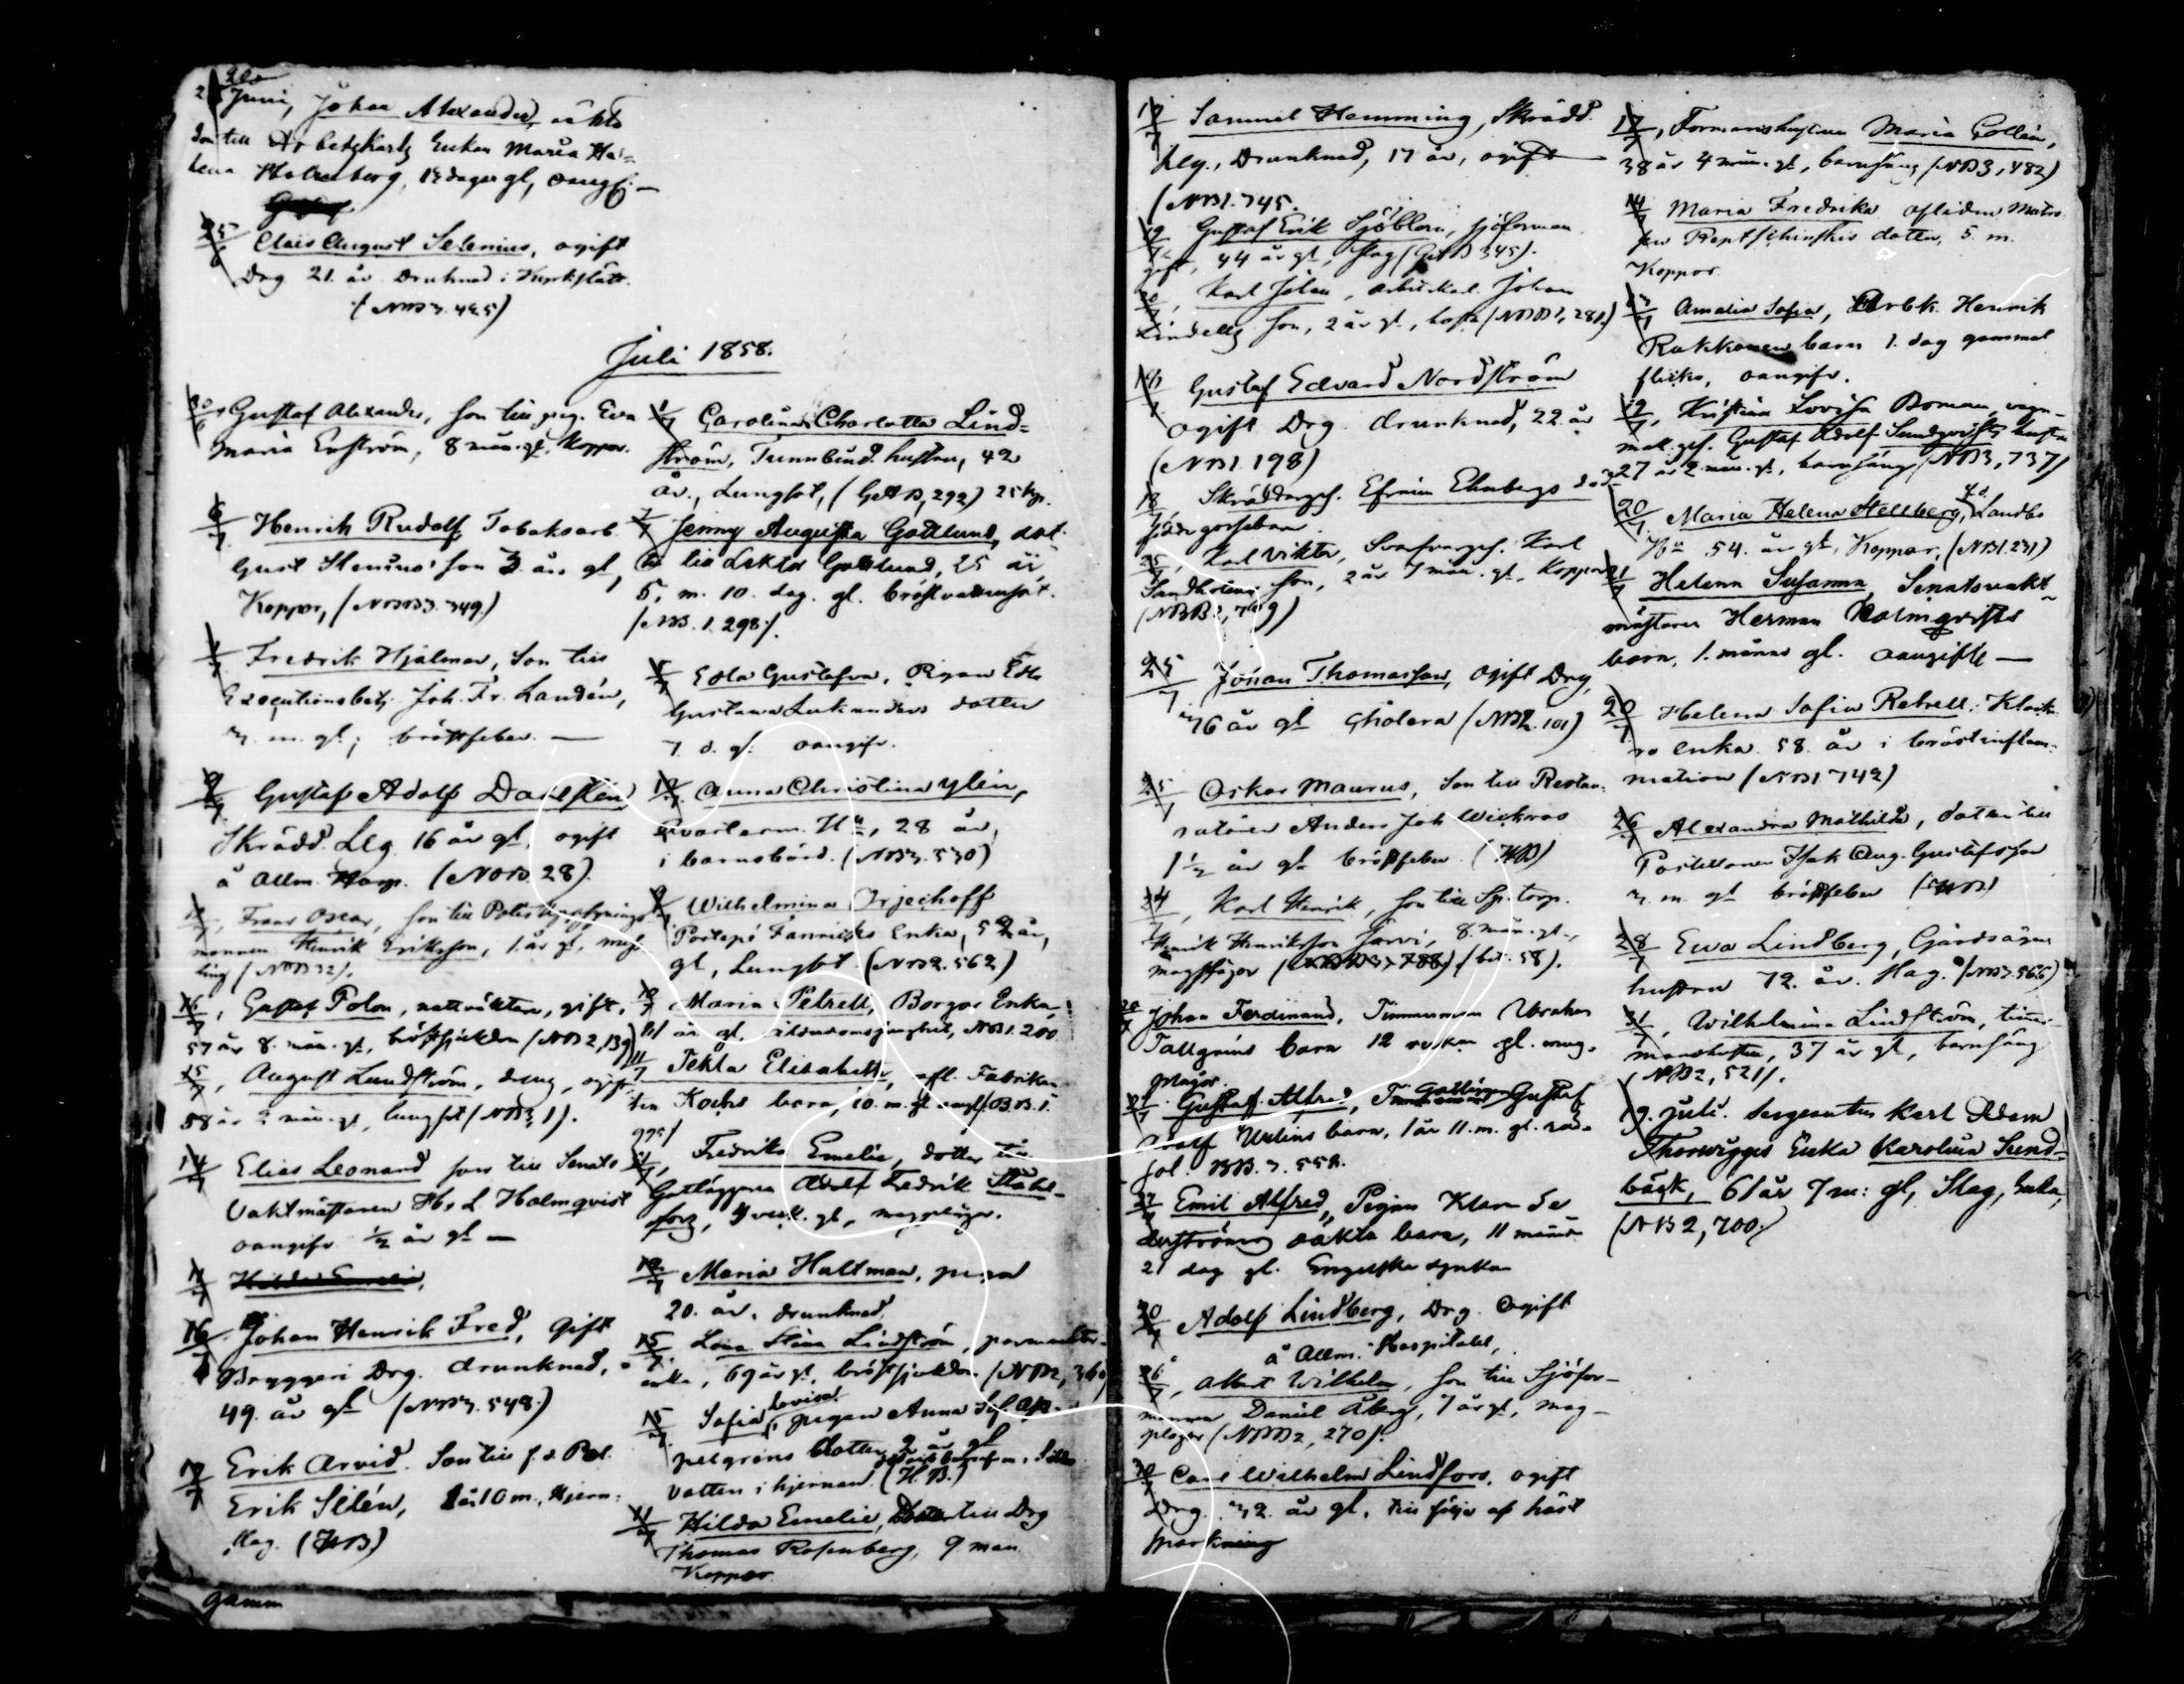 Juni, Johan Alexander, oäkta
son till Arbetskarls Enkan Maria He-
lena Holmberg, dagar gl, oangif. —
25/6 Claes August Selenius, ogift
Drg 21. år. Druknad i
(NB3. 425)
Juli 1858.
30/6 Gustaf Alexander, son till pig. Eva
Maria Enström, 8 mån. gl, Koppor.
6/7 Henrik Rudolf, Tobaksarb.
Gust Stenius' son 3 år gl,
Koppor, (NBB3. 349)
Fredrik Hjalmar, Son till
Executionsbetj. Joh. Fr. Landén,
3. m. gl; bröstfeber. —
9/7 Gustaf Adolf Dahlsten
Skrädd. Llg 16 år gl, ogift
å Allm. Hosp. (NB 28).
Frans Oscar, son till Polisuppsynings
mannen Henrik Eriksson, 1. år gl, mess
ling (NBB 32).
16/7, Gustaf Polon, nattväktare, gift,
57 år 8. mån. gl, bröstsjukdom (NB2, 139)
15/7, August Lundström, dreng, ogift
58 år 2 mån. gl, lungsot (NB3, 1).
14/7 Elias Leonard son till Senats
Vaktmästaren H. L Holmqvist
oangifv ½ år gl —
Hilda Emelie,
16/7 Johan Henrik Fred, Gift
Bryggeri Drg. drunknad,
49. år gl (NB3. 548.)
17/7 Erik Arvid. Son till f. d Pol.
Erik Silén, 2 år 10 m., Hjern-
slag. (HB)
gamm
1/7 Carolina Charlotta Lind=
ström, Tunnbind. hustru, 42
år., Lungsot, (GAB, 292) 25 kp.
7/7 Jenny Augusta Gottlund, dot-
ter till Lektor Gottlund, 25 år,
5. m. 10. dag. gl. bröstvattensot.
(NB. 1. 298).
Edla Gustafva, Pigan Edla
Gustava Lukanders dotter
7 d. gl. oangifv.
12/7. Anna Christina Ylén,
Qvarterm. Hu, 28 år,
i barnsbörd. (NB3. 530)
9/7 Wilhelmina Orjechoff
Enka, 52 år,
gl, Lungsot. (NB2. 562)
10/7 Maria Petrell, Borgar Enka,
81 år gl, ålderdomssvaghet, NB1. 200
11/7 Tekla Elisabeth, afl. Fabrikan-
ten Kochs barn, 10. m. gl
Fredrika Emelie, dotter till
Gatläggaren Adolf Fredrik Ståhl-
fors, 4 veck. gl, magplågor.
12/7 Maria Hultman, piga
20. år, drunknad.
15/7 Lena Stina Lindström,
enka, 69 år gl, bröstsjukdom (NB2,
15/7 Sofia Lovisa, pigan Anna Sof. Ap-
pelgrens dotter 2 år gl
vatten i hjernan. (H. B.)
11/7 Hilda Emelie, Dotter till Drg
Thomas Rosenberg, 9 mån
Koppor
17/7 Samuel Hemming, Skrädd.
Llg., Drunknad, 17 år, ogift
(NB1. 745.
19/7 Gustaf Erik Sjöblom, sjöforman
gift, 44 år gl, slag (GAB 345).
20/7, Karl Johan, arbetskarl. Johan
Lindells son, 2 år gl, hosta (NBB1, 281.)
Gustaf Edvard Nordström
ogift Drg. drunknad, 22 år
(NB1 198)
18 Skräddarges. Efraim Ehnbergs död-
född gossebarn
25/7, Karl Viktor, Svarfvarges. Karl
Sandholms son, 2 år 7 mån. gl, Koppor
(NBB3, 709)
25/7 Jonan Thomasson, ogift Drg,
76 år gl Cholera (NB2. 101)
25/7 Oskar Maurus, Son till Restau-
ratören Anders Joh Wickroos
1½ år gl bröstfeber. (HB)
24/7, Karl Henrik, son till Sp.torp.
Henrik Henriksson Järvi, 8. mån. gl.,
magplågor (bet. 58).
Johan Ferdinand, Timmerman Abraham
Tallgréns barn 12 veckor gl. mag-
plågor.
Gustaf Alfred, Gatläggar Gustaf
Adolf Uhlins barn, 1 år 11. m. gl. röd-
sot. BB. 3. 552.
27/7 Emil Alfred, Pigan Klara Se-
derströms oäkta barn, 11 månad
21 dag gl. Engelska sjukan
20/7 Adolf Lindberg, Drg. Ogift
å Allm. Hospitalet,
26/7, Albert Wilhelm, son till Sjöfor-
mannen Daniel Åberg, 7 år gl, mag-
plågor (NBB2, 270).
Carl Wilhelm Lindfors, ogift
Drg. 32. år gl, till följe af häst
sparkning
17/7, Formanshustrun Maria Collin,
38 år 4 mån. gl, barnsäng (NB3, 482)
14/7 Maria Fredrika aflidne Matro
sen dotter, 5. m.
Koppor.
Amalia Sofia, Arbk. Henrik
Rokkonen barn 1. dag gammal
flicka, oangifv.
19/7, Kristina Lovisa Boman, vagn-
mak.ges. Gustaf Adolf Sundqvists hustru
27 år 2 mån. gl, barnsäng (NB3, 737)
20/7 Maria Helena Hellberg, f.d. Landbo
Hu 54. år gl, Koppor, (NB1. 231)
21/7 Helena Susanna, Senatsvakt-
mästaren Herman Holmqvists
barn, 1. månad gl. oangifv —
20/7 Helena Sofia Retrell. Klocka-
re enka. 58. år i bröstinflam-
mation (NB1 742)
26/7 Alexandra Mathilda, dotter till
Postillionen Isak Aug. Gustafsson
3. m. gl bröstfeber (HB)
28/7 Eva Lindberg, Gårdsägar
hustru 72. år. Slag. (NB3. 566)
31/7, Wilhelmina Lindström, timer-
manshustru, 37 år gl, barnsäng
(NB2, 521).
19. juli. Sergeanten Karl Adam
Thorwigges Enka Karolina Sund-
bäck, 61 år 7 m: gl, Slag,
(NB 2, 700.)